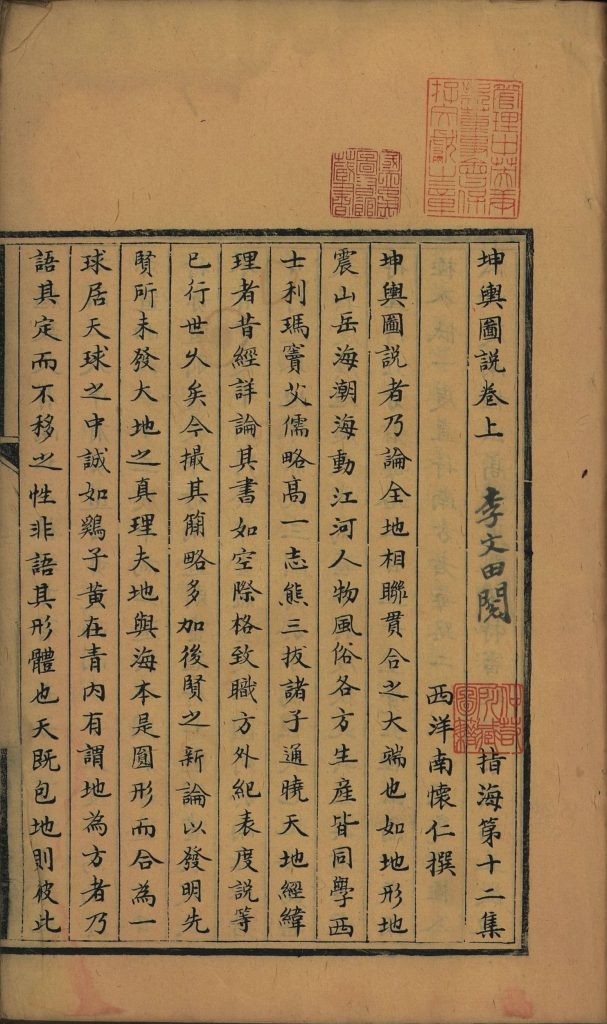 坤輿圖說卷上 李文田閱 指海第十二集
西洋南懷仁撰
坤輿圖說者乃論全地相聯貫合之大端也如地形地
震山岳海潮海動江河人物風俗各方生產皆同學西
士利瑪竇艾儒略高一志熊三拔諸子通曉天地經緯
理者昔經詳論其書如空際格致職方外紀表度說等
已行世久矣今撮其簡略多加後賢之新論以發明先
賢所未發大地之真理夫地與海本是圓形而合為一
球居天球之中誠如鷄子黃在青內有謂地為方者乃
語其定而不移之性非語其形體也天既包地則彼此